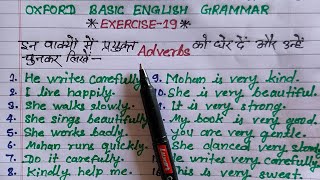 OXFORD BASIC ENGLISH GRAMMAR
*EXERCISE-19*
इन वाक्यों में प्रयुक्त Adverbs को घेर दें और उन्हें
चुनकर लिखें-
1. He writes carefully.
2. I live happily.
3. She walks slowly.
4. She sings beautifully.
5. She works badly.
6. Mohan runs quickly.
7. Do it carefully.
8. Kindly help me.
9. Mohan is very kind.
She is very beautiful.
It is very strong.
My book is very good.
You are very gentle.
She danced very slowly.
He writes very carefully.
This is very sweet.